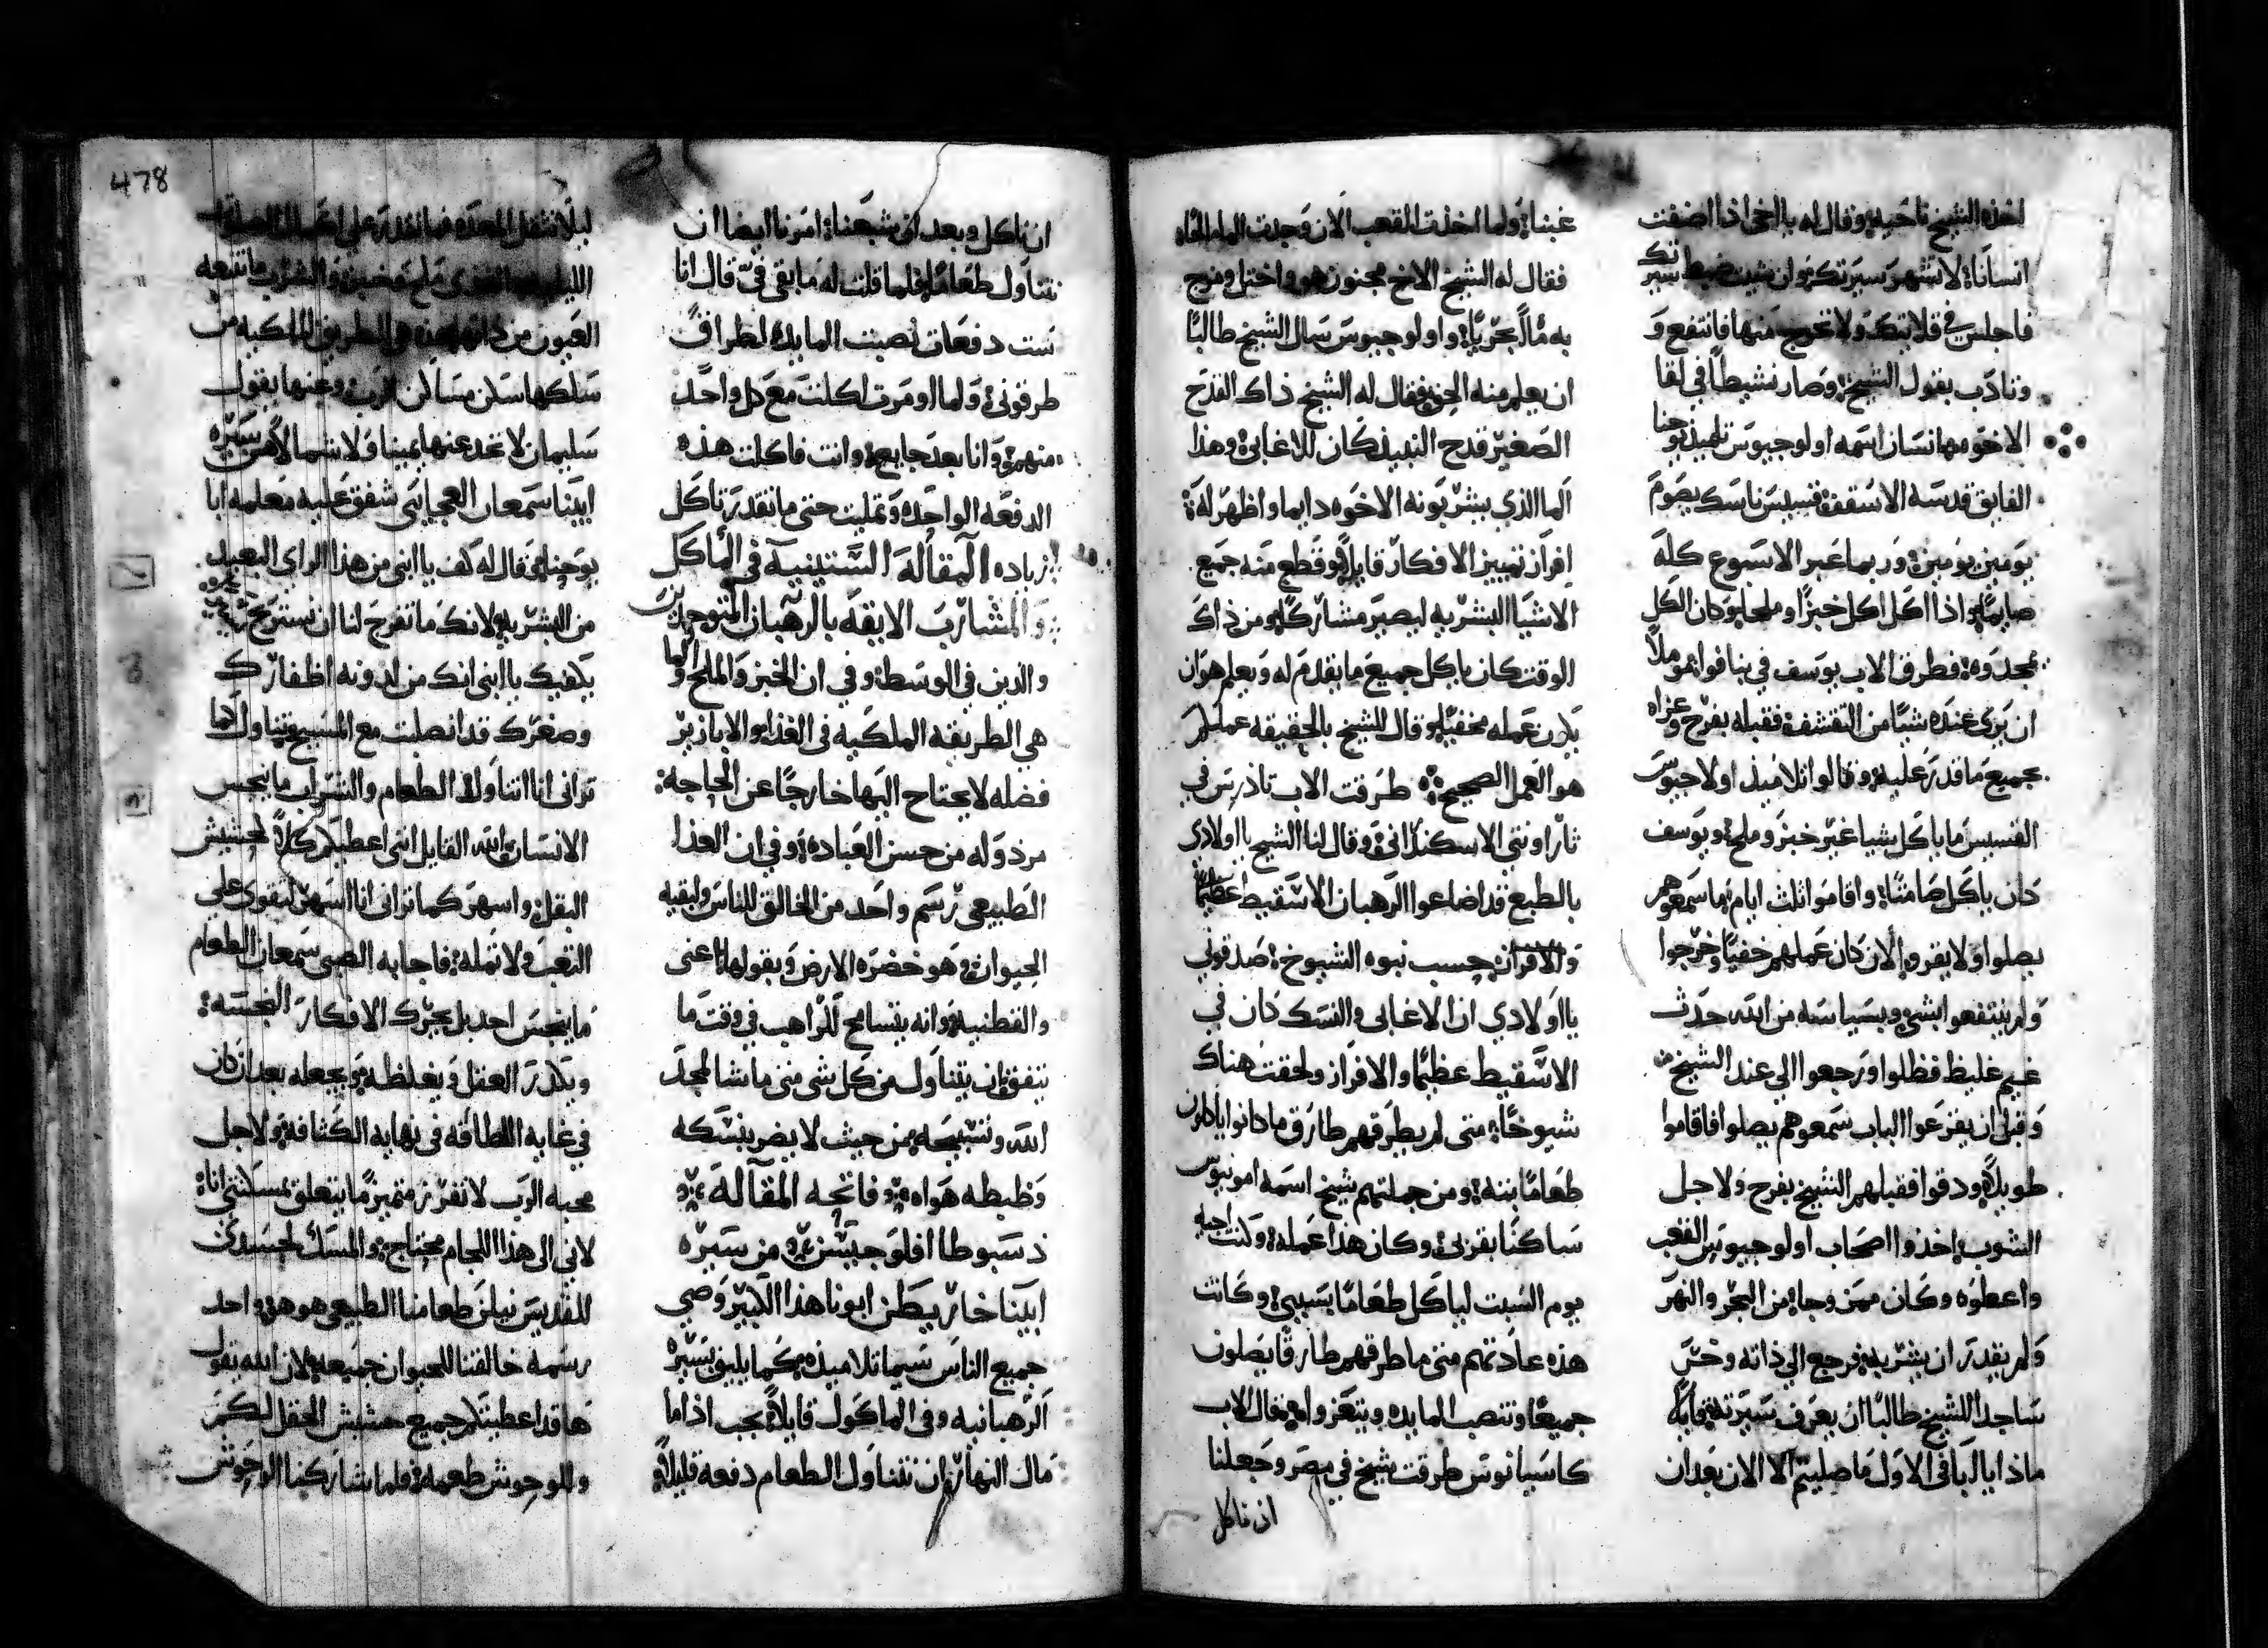 اخذه الشيخ ناحيه وقال له يا اخي اذا اضفت
انسانا لا تشهر سيرتك وان شيت ضبط سيرتك
فاجلس في قلايتك ولا تخرج منها فانتفع و
وتادب بقول الشيخ وصار نشيطا في لقا
الاخوه مهانسان اسمه اولوجيوس تلميذ يوحنا
الفايق قدسه الاسقف قسيس ناسك يصوم
يومين يومين وربما عبر الاسبوع كله
صايما واذا اكل اكل خبزا وملحا وكان الكل
يمجدوه فطرق الاب يوسف في بنافوا موملا
ان يرى عنده شيا من التقشف فقبله بفرح وعزاه
بجميع ما قدر عليه وقالوا تلاميذ اولاجيوس
القسيس ما ياكل شيا غير خبز وملح ويوسف
كان ياكل صامتا واقاموا ثلث ايام ما سمعوهم
يصلوا ولا يقروا لان كان عملهم خفيا وخرجوا
ولم ينتفعوا بشي وبسياسه من الله حدث
غيم غليظ فظلوا ورجعوا الي عند الشيخ
وقبل ان يقرعوا الباب سمعوهم يصلوا فاقاموا
طويلا ودقوا فقبلهم الشيخ بفرح ولاجل
الشوب اخذوا اصحاب اولوجيوس القعب
واعطوه وكان ممزوجا من البحر والنهر
ولم يقدر ان يشربه فرجع الي ذاته وخر
ساجدا للشيخ طالبا ان يعرف سيرته قايلا
ماذا يا ابا في الاول ما صليتم الا الان بعد ان
غبنا ولما اخذت القعب الان وجدت الما مالحا
فقال له الشيخ الاخ مجنون هو واختل ومزج
به مالا بحريا واولوجيوس سال الشيخ طالبا
ان يعلم منه الحق فقال له الشيخ ذاك القدح
الصغير قدح النبيذ كان للاغابي وهذا
الما الذي يشربونه الاخوه دايما واظهر له
افراز تمييز الافكار قايلا وقطع منه جميع
الاشيا البشريه ليصير مشاركا ومن ذاك
الوقت كان ياكل جميع ما يقدم له وتعلم هو ان
يكون عمله مخفيا وقال للشيخ بالحقيقه عملكم
هو العمل الصحيح طرقت الاب تاذرس في
ثاراونتي الاسكندراني وقال لنا الشيخ يا اولادي
بالطبع قد اضاعوا الرهبان الاسقيط عظيما
والافران حسب نبوه الشيوخ صدقوني
يا اولادي ان الاغابي والنسك كان في
الاسقيط عظيما والافراز ولحقت هناك
شيوخا متى لم يطرقهم طارق ما كانوا ياكلون
طعاما بته ومن جملتهم شيخ اسمه امونيوس
ساكنا بقربي وكان هذا عمله وكنت اجيه
يوم السبت لياكل طعاما بسببي وكانت
هذه عادتهم متى ما طرقهم طارق يصلون
جميعا وتنصب المايده ويتغزوا معه قال الاب
كاسيانوس طرقت شيخ في مصر وجعلنا
ان ناكل
ان ناكل وبعد ان شبعنا امرنا ايضا ان
نتناول طعاما فلما قلت له ما بقى في قال انا
ست دفعات نصبت المايده لطراق
طرقوني ولما اومرت اكلت مع كل واحد
منهم وانا بعد جايع وانت فاكلت هذه
الدفعه الواحده وتمليت حتى ما تقدر تاكل
زياده المقاله الستينيه في الماكل
والمشارب الايقه بالرهبان المتوحدين
والذين في الوسط وفي ان الخبز والملح والما
هي الطريقه الملكيه في الغذا والابازير
فضله لا يحتاج اليها خارجا عن الحاجه
مرذوله من حسن العباده وفي ان الغذا
الطبيعي رسم واحد من الخالق للناس ولبقيه
الحيوان وهو خضره الارض وبقولها اعنى
والقطنيه وانه يتسامح للراهب في وقت ما
يتفق ان يتناول من كل شي متى ما شا لمجد
الله وتسبيحه من حيث لا يضر بنسكه
وظبطه هواه فاتحه المقاله
دسبوطا افلوجيسن من سيره
ابينا خاريطن ابونا هذا الكبير وصي
جميع الناس سيما تلاميذه كما يليق بسيره
الرهبانيه وفي الماكول قايلا يجب اذا ما
مال النهار ان نتناول الطعام دفعه قليلا
ليلا تثقل المعده فما نقدر على اكمال الصلوات
الليليه
العيون من ذاتها هذه هي الطريق الملكيه من
سلكها سلن مسالن الرب وعنها يقول
سليمان لا تحد عنها يمينا ولا شمالا من سيره
ابينا سمعان العجايبى شفق عليه معلمه ابا
يوحنا وقال له كف يا ابنى من هذا الراي البعيد
من البشريه لانك ما تفرج لنا ان نستريح
يكفيك يا ابنى انك من لدونه اظفارك
وصغرك قد اتصلت مع المسيح تتناول كما
تراني انا اتناول لان الطعام والشراب ما ينجس
الانسان الله القايل انني اعطيكم كلا لحشيش
البقل واسهر كما تراني انا اسهر لتقوى على
التعب ولا تمله فاجابه الصبي سمعان الطعام
ما ينجس احد بل يحرك الافكار النجسه
ويكدر العقل ويغلظه ويجعله بعد ان كان
في غايه اللطافه في نهايه الكثافه ولاجل
محبه الرب لا تفرز متميزا ما يتعلق بمسكنتي انا
لاني الى هذا اللجام محتاج والمسك لجسدي
للقديس نيلن طعامنا الطبيعي هو هو واحد
رسمه خالقنا للحيوان جميعه لان الله يقول
ها قد اعطيتكم جميع حشيش الحقل لكم
وللوحوش طعمه فلما شاركنا الوحوش
478